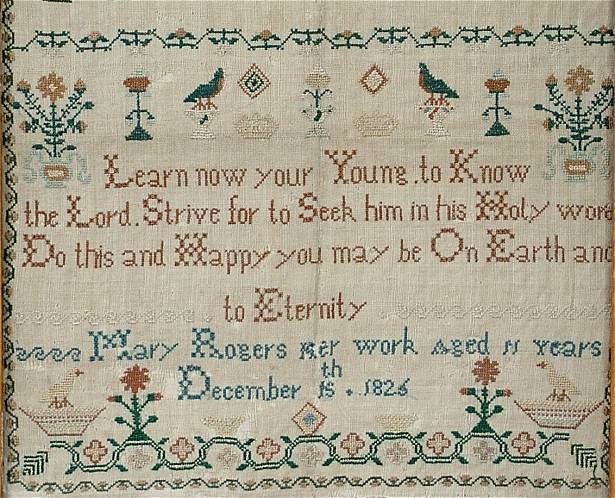 Learn now your Young . to Know
the Lord . Strive for to Seek him in his Holy word
Do this and Happy you may be On Earth and
to Eternity
Mary Rogers Her work Aged 11 Years
December 15th . 1826